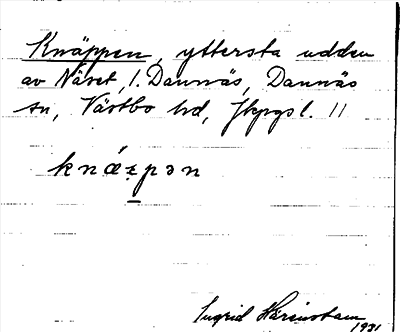 Knäppen, yttersta udden
av Näset, 1. Dannäs, Dannäs
sn, Västbo hd, Jkpgs l. 11
knǽpən
Ingrid Härenstam
1931